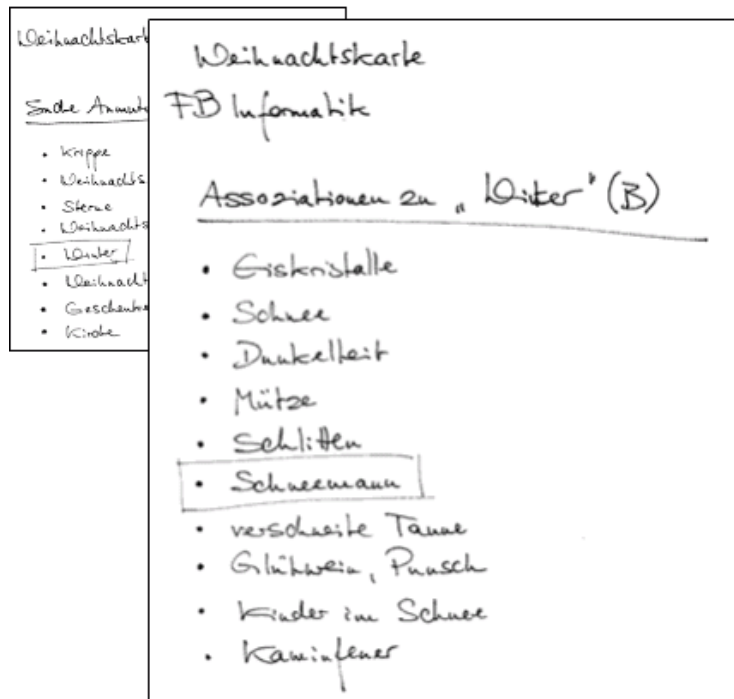 Weihnachtskart
Suche Anmut
• Krippe
• Weihnachts
• Sterne
• Weihnachts
• Winter
• Weihnacht
• Geschenke
• Kirche
Weihnachtskarte
FB Informatik
Assoziationen zu „Winter" (B)
• Eiskristalle
• Schnee
• Dunkelheit
• Mütze
• Schlitten
• Schneemann
• verschneite Tanne
• Glühwein, Punsch
• Kinder im Schnee
• Kaminfeuer